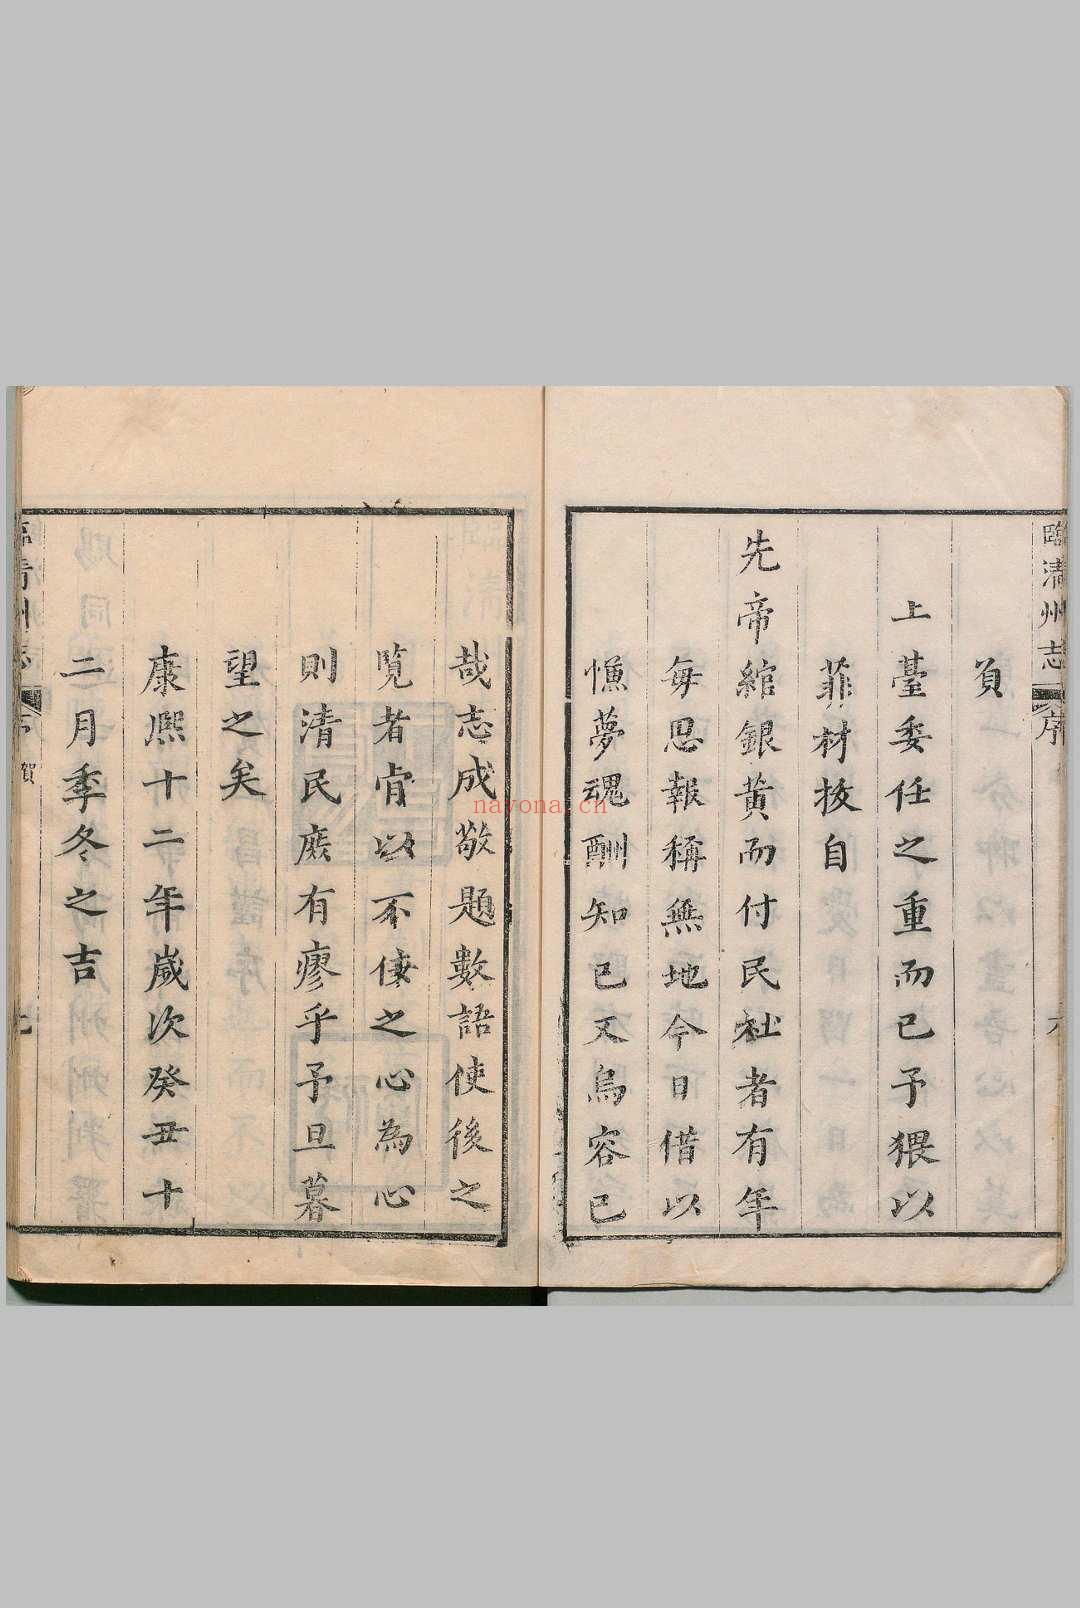 臨清州志
序
負
上臺委任之重而已予猥以
菲材拔自
先帝綰銀黃而付民社者有年
每思報稱無地今日借以
慿夢魂酬知已又烏容已
哉志成敬題數語使後之
覽者肯以不倦之心為心
則清民庶有廖乎予旦暮
望之矣
康熈十二年歲次癸丑十
二月季冬之吉
臨清州志
賀
nayona.cn